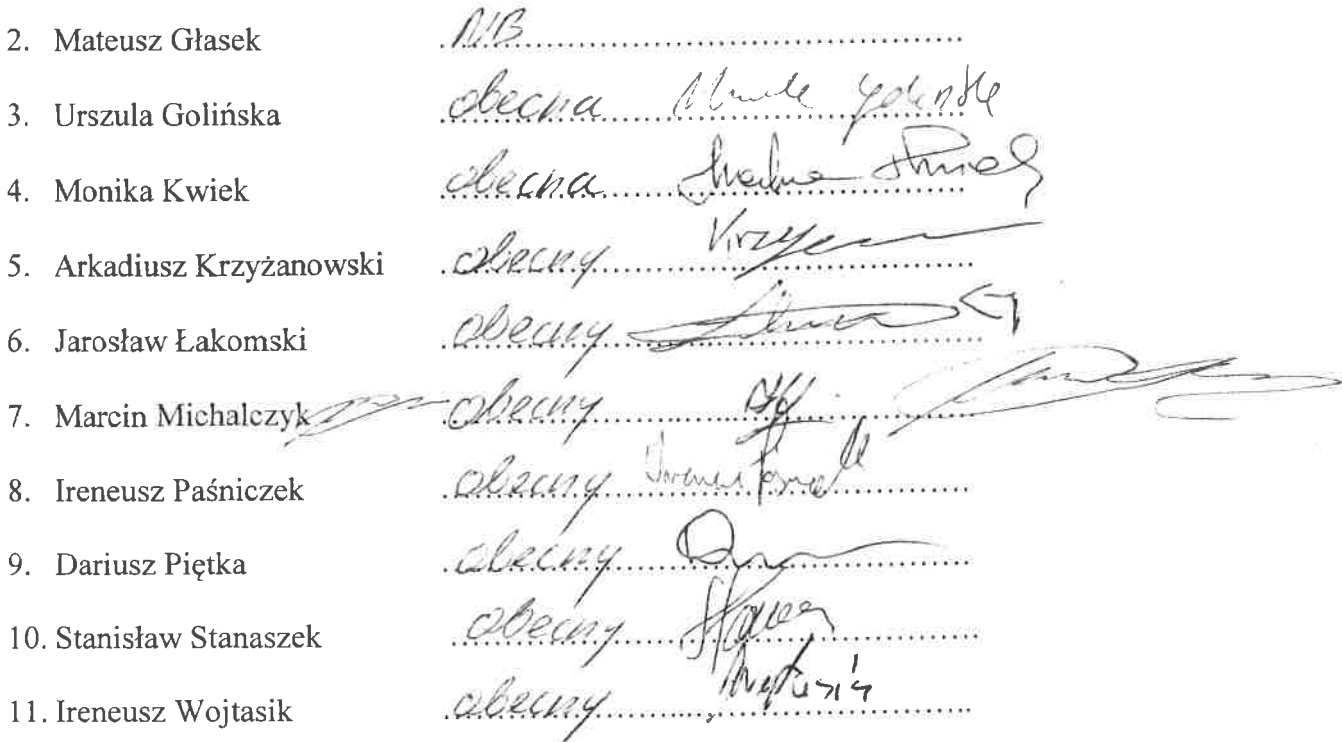 2. Mateusz Głasek NB
3. Urszula Golińska obecna
4. Monika Kwiek obecna
5. Arkadiusz Krzyżanowski obecny
6. Jarosław Łakomski obecny
7. Marcin Michalczyk obecny
8. Ireneusz Paśniczek obecny
9. Dariusz Piętka obecny
10. Stanisław Stanaszek obecny
11. Ireneusz Wojtasik obecny